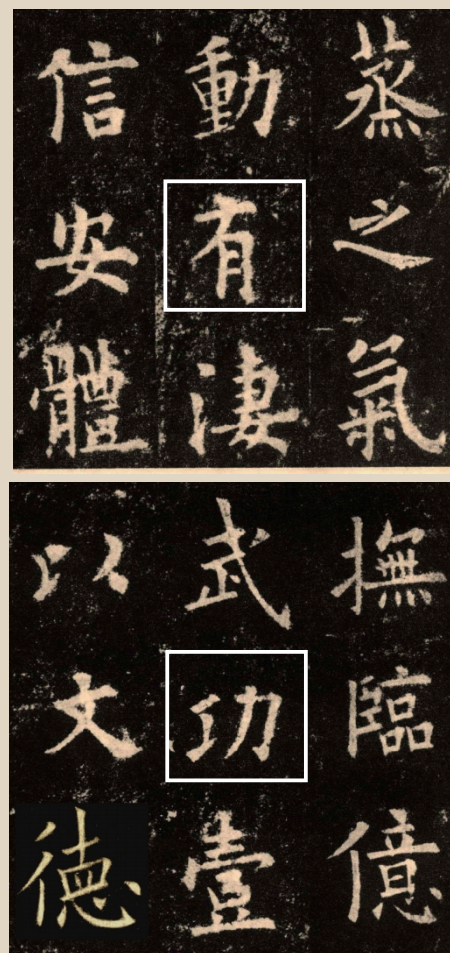 蒸之氣
動有淒
信安體
撫臨億
武功壹
以文德